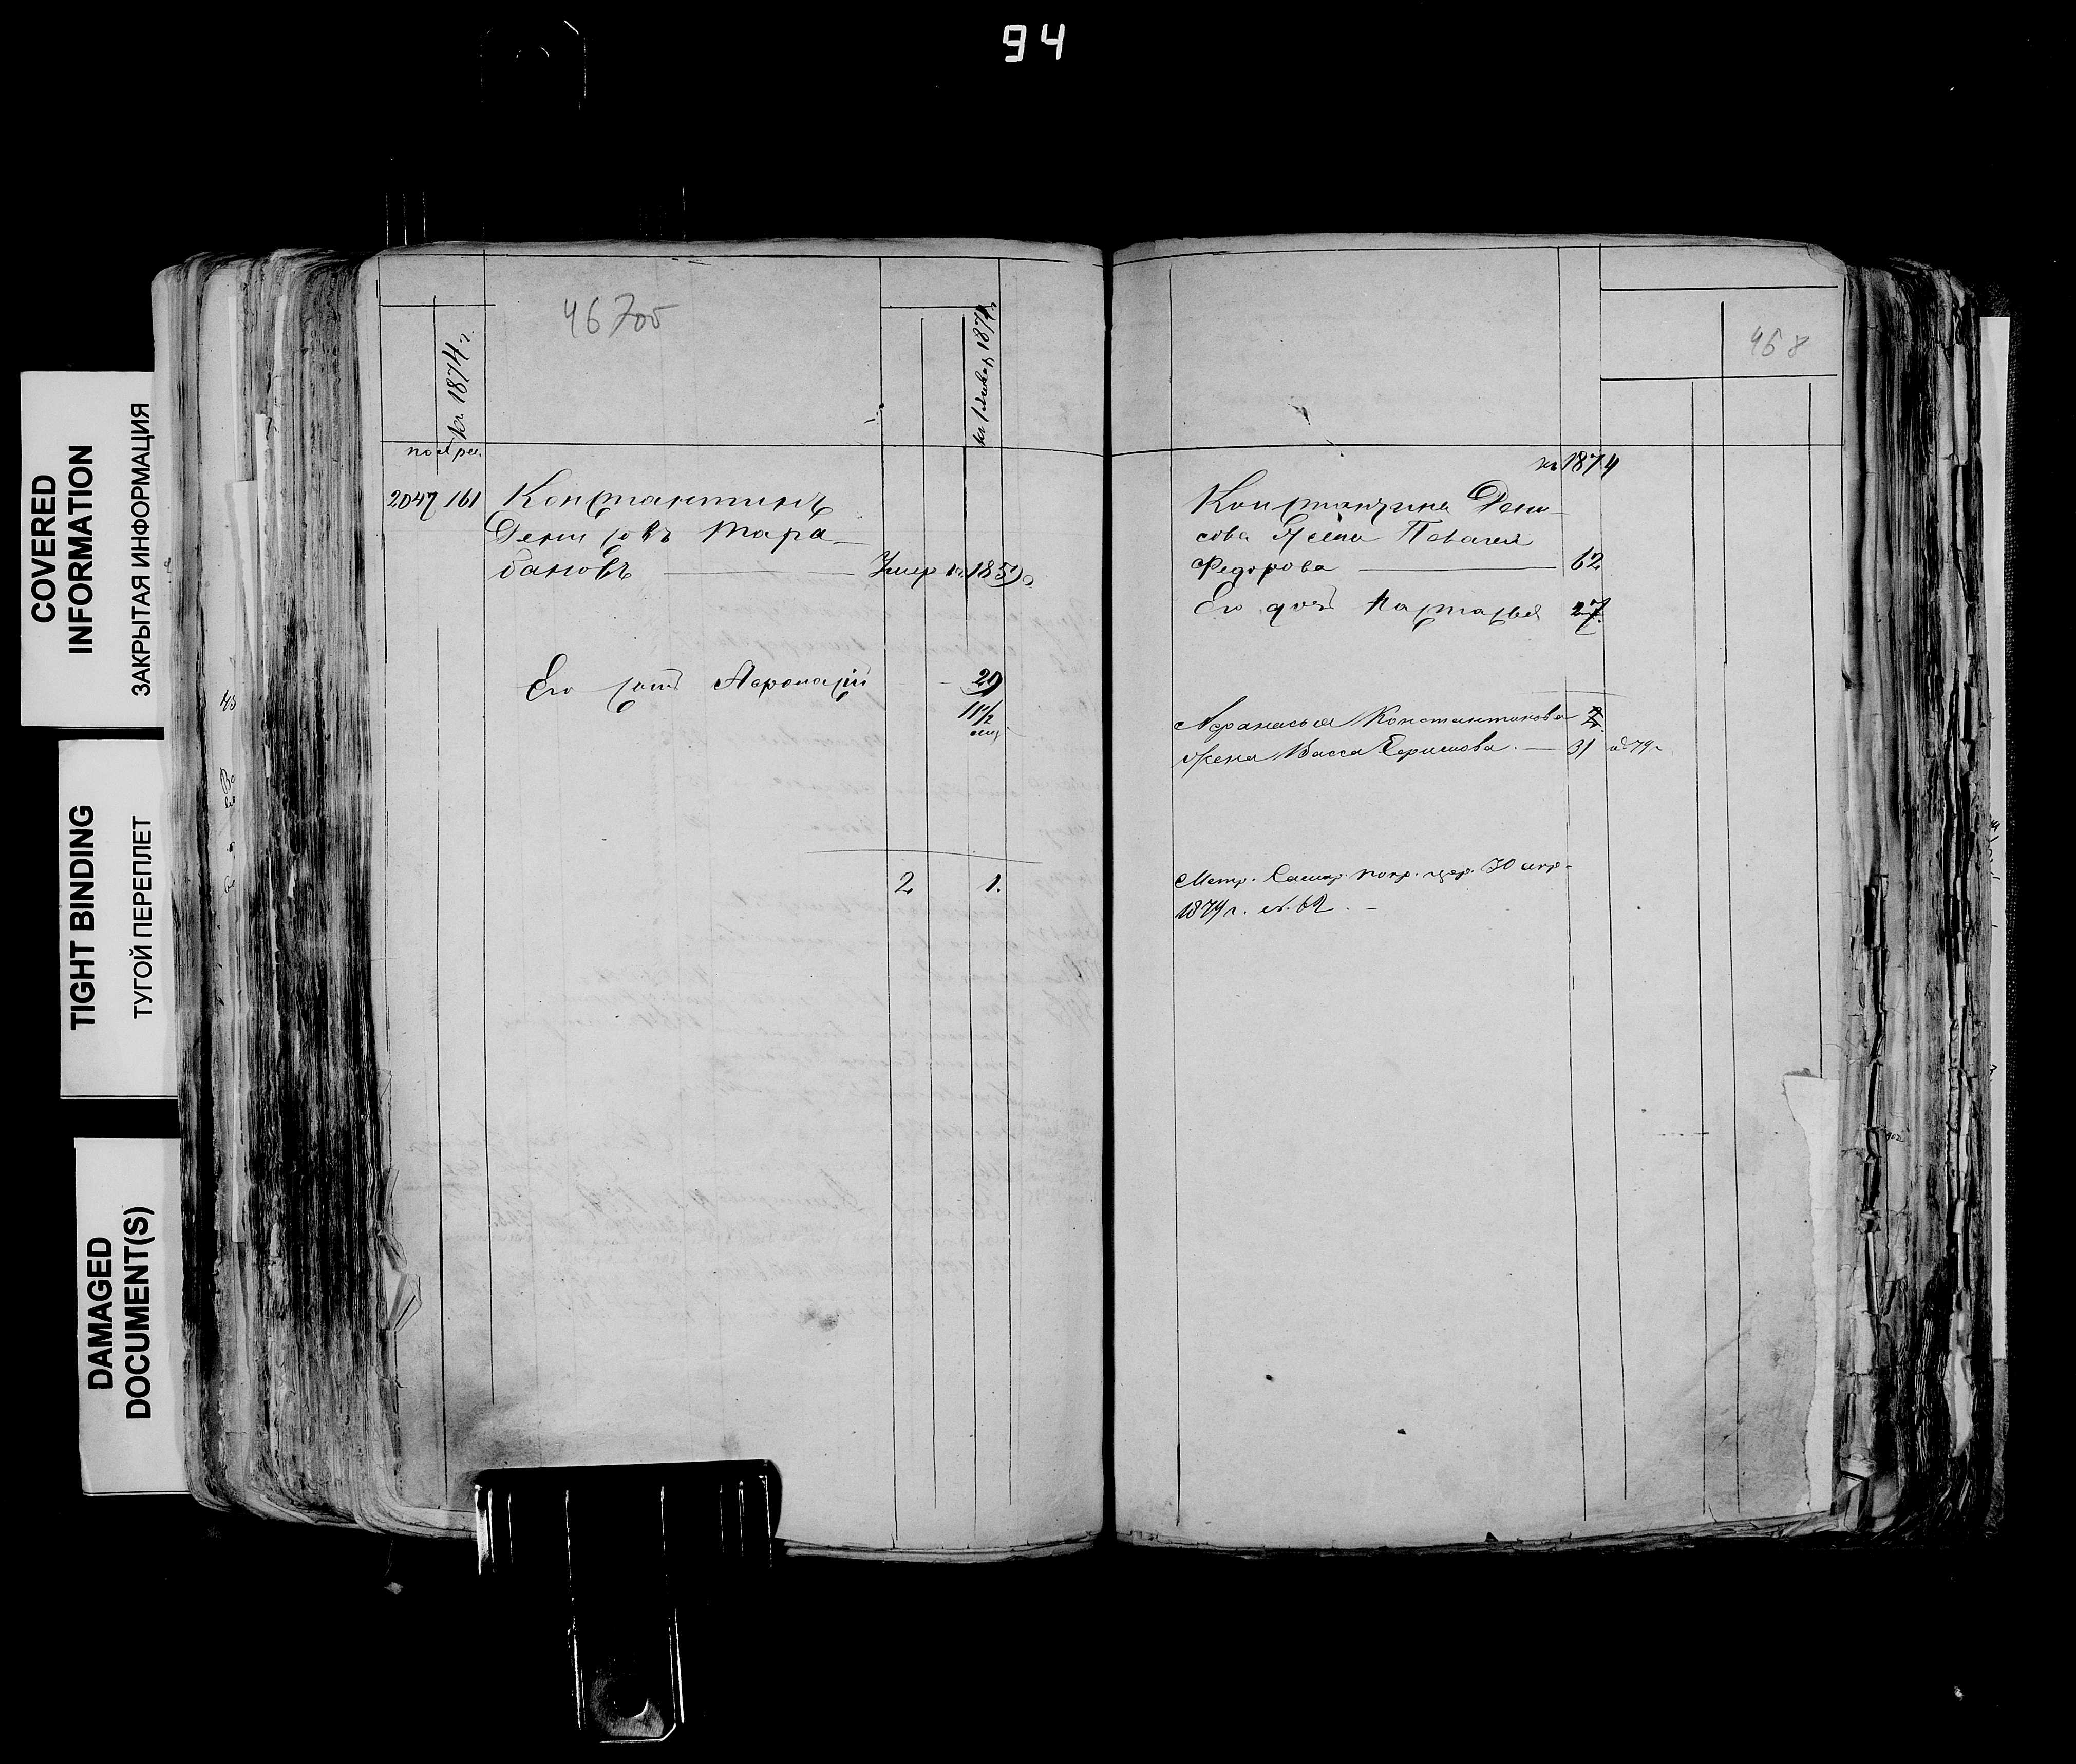 94
COVERED
INFORMATION
ЗАКРЫТАЯ ИНФОРМАЦИЯ
TIGHT BINDING
ТУГОЙ ПЕРЕПЛЕТ
DAMAGED
DOCUMENT(S)
467об
къ 1874 г.
къ 1 Январ 1874 г.
по рев.
2047 161 Константинъ
Денисовъ Тара-
бановъ — Умер въ 1859 г.
Его сынъ Афонасій 29
11 1/2
мец.
2 1.
468
къ 1874
Константина Дени-
сова Жена Пелагея
Федорова — 62
Его дочь Настасья 27
Афанасья Константинова
Жена Васса Ефимова. — 31
Метр. Самар. покр. цер. 30 апр.
1879 г. №. 62. —